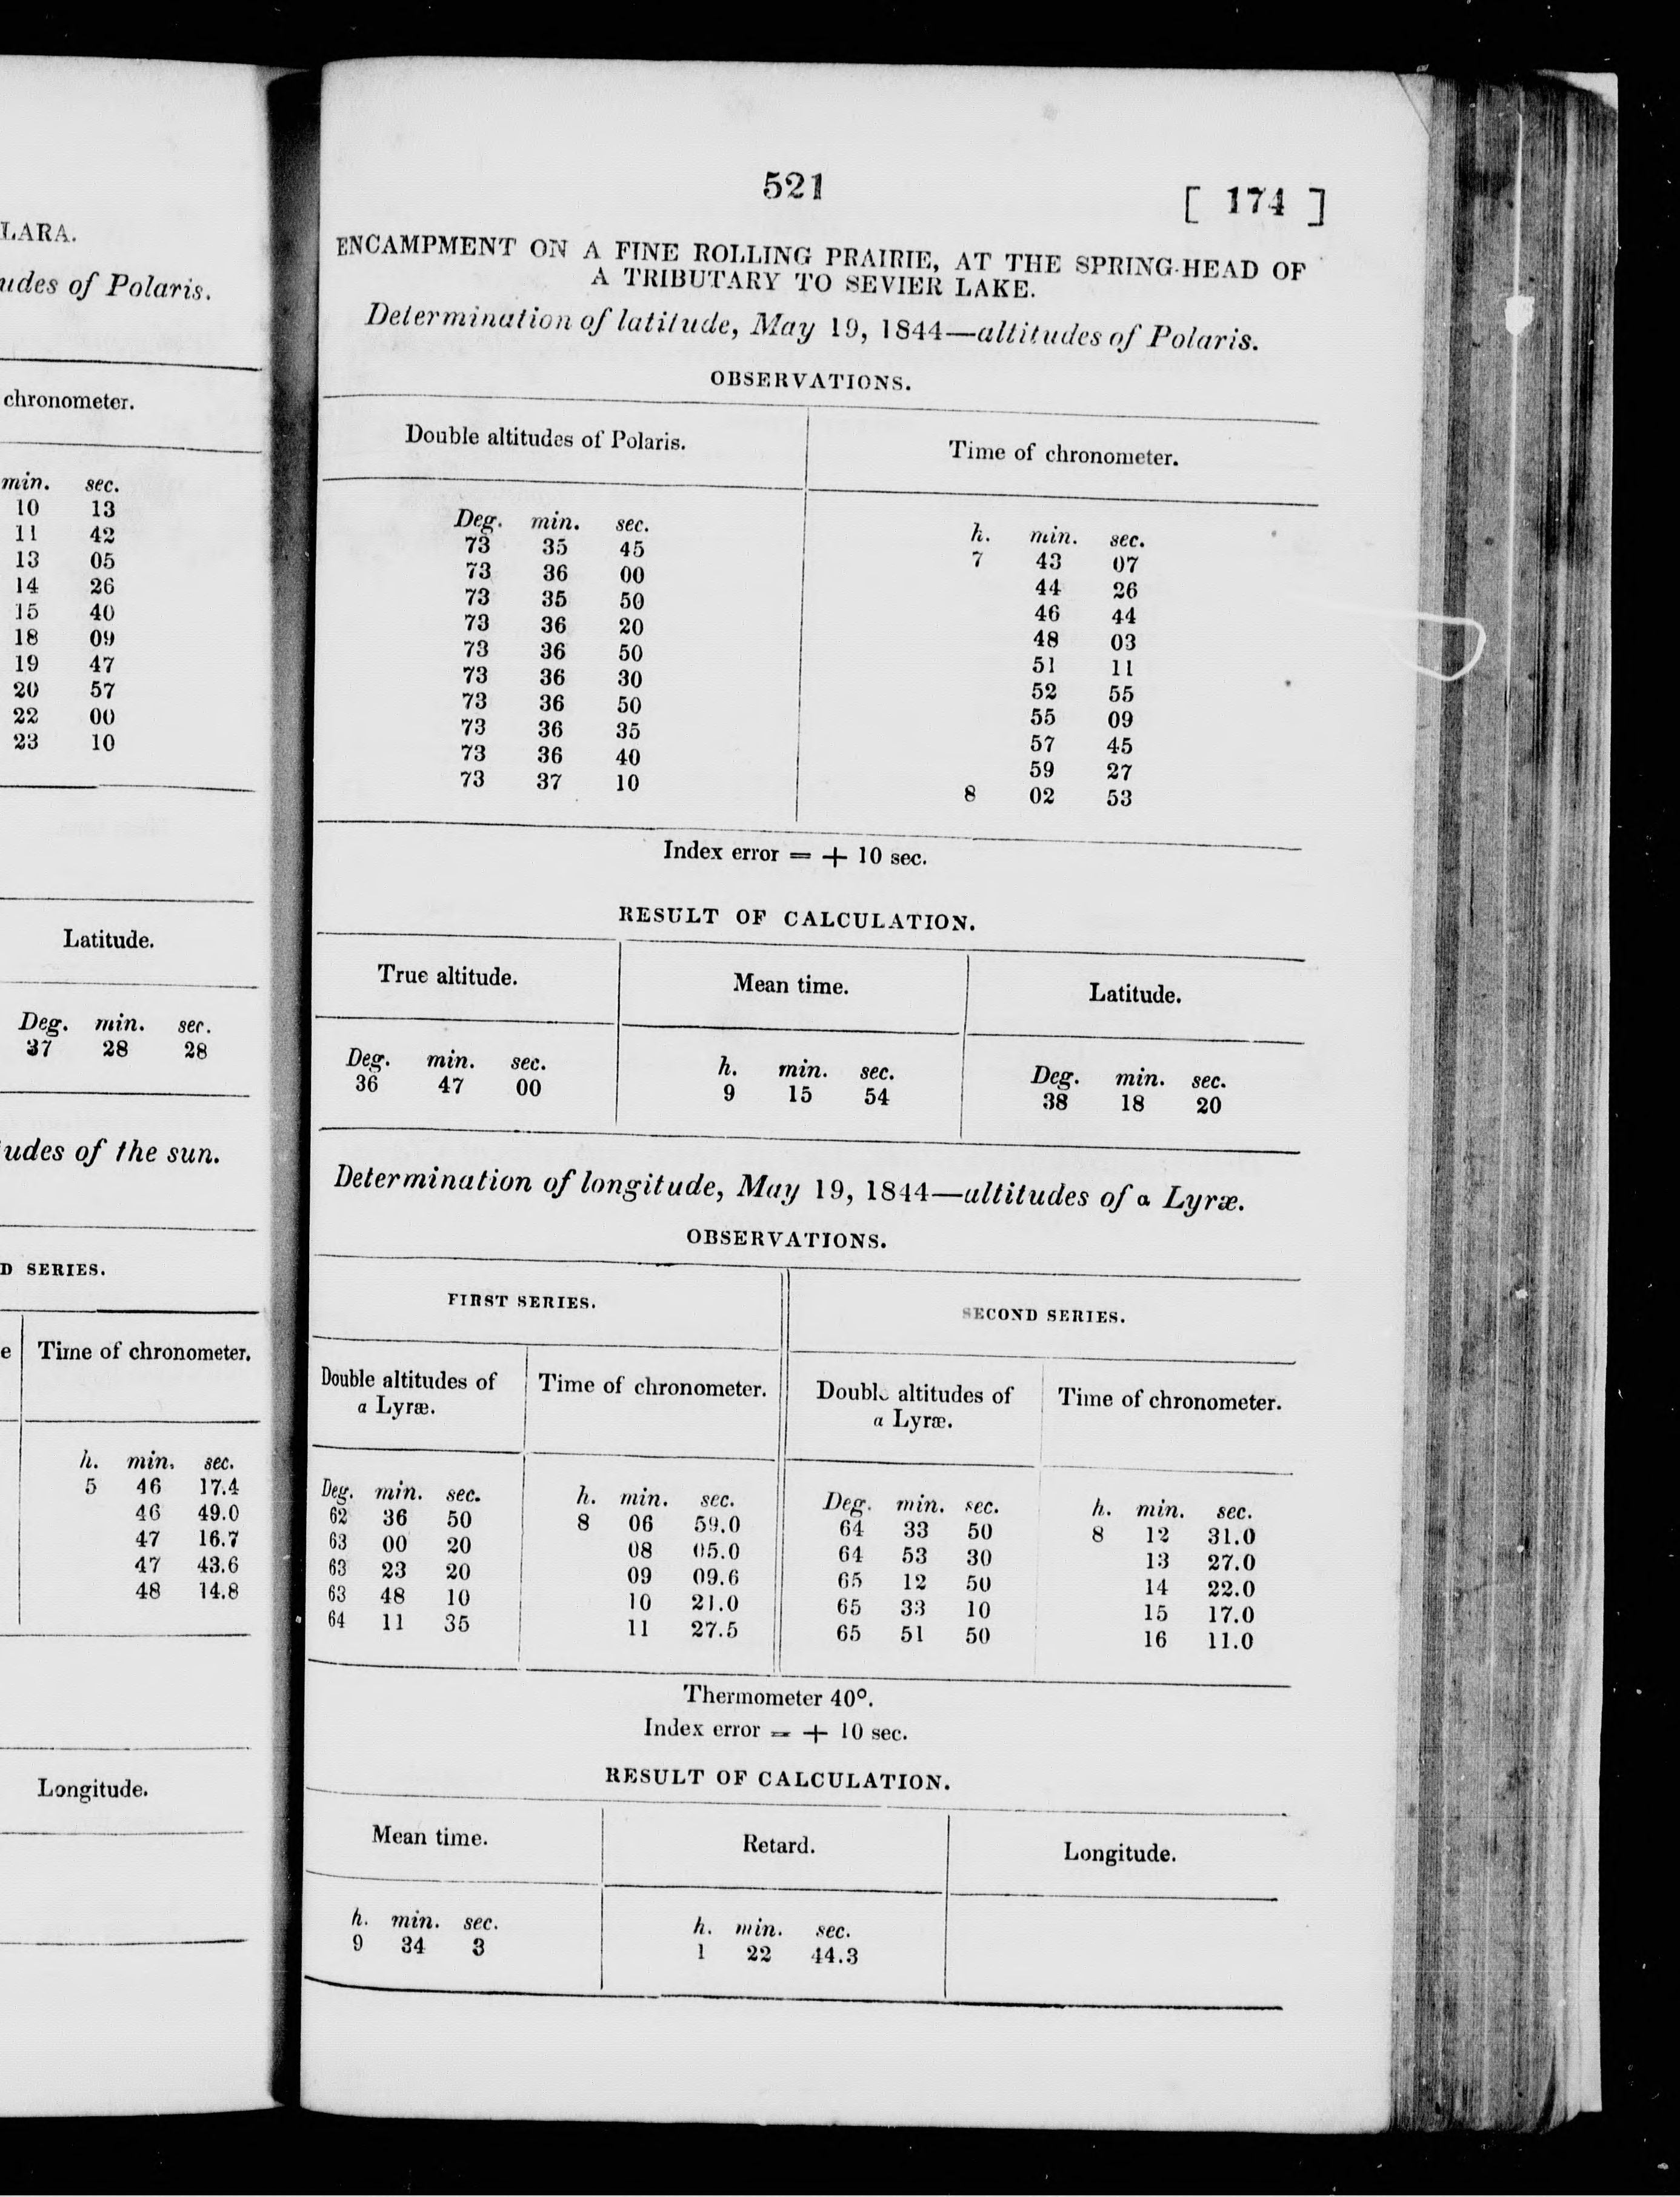 LARA.
udes of Polaris.
chronometer.
min. sec.
10 13
11 42
13 05
14 26
15 40
18 09
19 47
20 57
22 00
23 10
Latitude.
Deg. min. sec.
37 28 28
udes of the sun.
D SERIES.
e Time of chronometer.
h. min. sec.
5 46 17.4
46 49.0
47 16.7
47 43.6
48 14.8
Longitude.
521 [ 174 ]
ENCAMPMENT ON A FINE ROLLING PRAIRIE, AT THE SPRING-HEAD OF
A TRIBUTARY TO SEVIER LAKE.
Determination of latitude, May 19, 1844—altitudes of Polaris.
OBSERVATIONS.
Double altitudes of Polaris. Time of chronometer.
Deg. min. sec. h. min. sec.
73 35 45 7 43 07
73 36 00 44 26
73 35 50 46 44
73 36 20 48 03
73 36 50 51 11
73 36 30 52 55
73 36 50 55 09
73 36 35 57 45
73 36 40 59 27
73 37 10 8 02 53
Index error = + 10 sec.
RESULT OF CALCULATION.
True altitude. Mean time. Latitude.
Deg. min. sec. h. min. sec. Deg. min. sec.
36 47 00 9 15 54 38 18 20
Determination of longitude, May 19, 1844—altitudes of a Lyræ.
OBSERVATIONS.
FIRST SERIES. SECOND SERIES.
Double altitudes of Time of chronometer. Double altitudes of Time of chronometer.
a Lyræ. a Lyræ.
Deg. min. sec. h. min. sec. Deg. min. sec. h. min. sec.
62 36 50 8 06 59.0 64 33 50 8 12 31.0
63 00 20 08 05.0 64 53 30 13 27.0
63 23 20 09 09.6 65 12 50 14 22.0
63 48 10 10 21.0 65 33 10 15 17.0
64 11 35 11 27.5 65 51 50 16 11.0
Thermometer 40°.
Index error = + 10 sec.
RESULT OF CALCULATION.
Mean time. Retard. Longitude.
h. min. sec. h. min. sec.
9 34 3 1 22 44.3